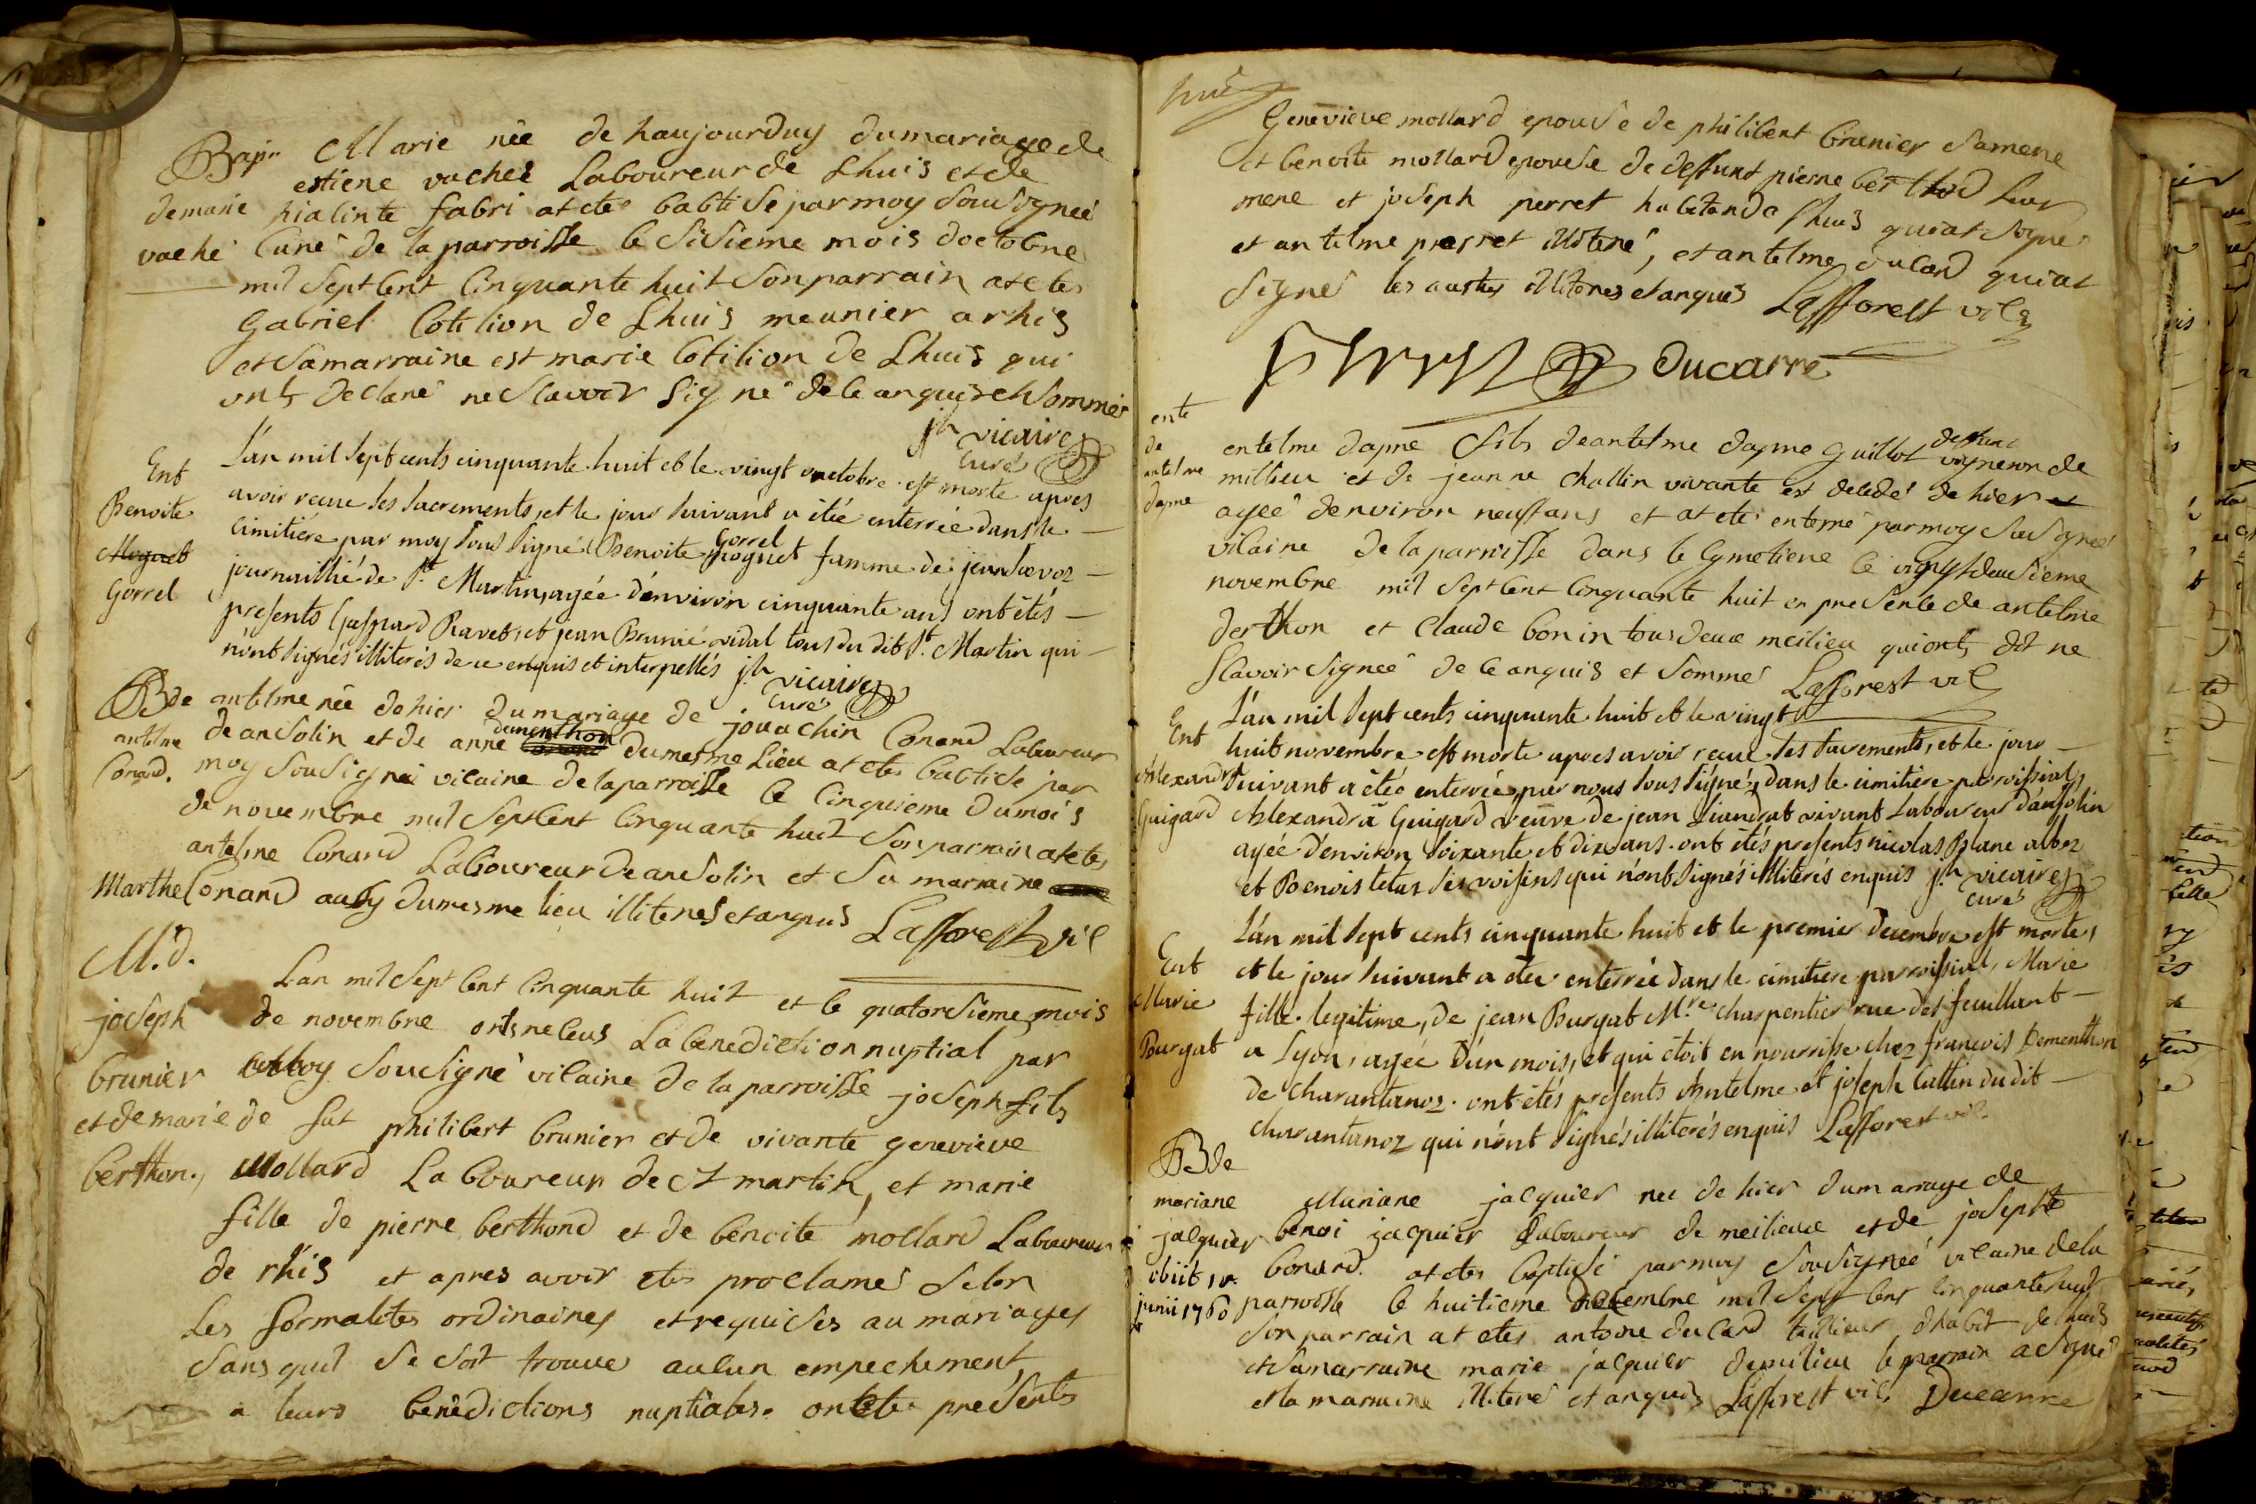 Bap.
de marie
vaché
Marie née de haujourduy du mariage de
estiene vacher Laboureur de Lhuis et de
hialinte fabri at ete babtisé par moy Sousigneé
Curé de la parroisse le Sisieme mois doctobre
mil Sept Cent Cinquante huit Son parrain at ete
Gabriel Cotilion de Lhuis meunier a rhis
et Sa marraine est marie Cotilion de Lhuis qui
onts Declaré ne Scavoir Signé de Ce anquis et Sommés
jh vicaire
Curé
Ent
Benoite
Moguet
Gorrel
L'an mil sept cents cinquante huit et le vingt octobre est morte apres
avoir recue les sacrements, et le jour suivant a étée enterrée dans le
cimitiére par moy sous signé Benoite Gorrel moguet famme de jean
journaillié de St. Martin, agée d'environ cinquante ans ont étés
presents Gaspard Ravet, et jean Brunié vidal tous du dit St. Martin qui
n'ont signés illiterés de ce enquis et interpellés jh vicaire
Curé
B de
antelme
Conand.
antelme née de hier du mariage de jouachin Conand Laboureur
de ansolin et de anne dementhon du mesme Lieu at ete babtisé par
moy Sousigneé vicaire de la parroisse le Cinquieme du mois
de novembre mil Sept Cent Cinquante huit Son parrain at ete
antelme Conand Laboureur de ansolin et Sa marraine
Marthe Conand aussy du mesme lieu illiterés et anquis Lafforest vic
M.d.
joseph
brunier
et de marie
berthon.
Lan mil Sept Cent Cinquante huit et le quatorsieme mois
de novembre onts receus La benediction nuptial par
Moy Sousigné vicaire de la parroisse joseph fils
de fut philibert brunier et de vivante genevieve
Mollard Laboureur de St martin, et marie
fille de pierre berthond et de benoite mollard Laboureur
de rhis et apres avoir ete proclamés Selon
Les formalites ordinaires et requises au mariages
Sans quil Se Soit trouve aucun empechement
a leurs benêdictions nuptiales. ont ete presents
Genevieve mollard epouse de philibert brunier Sa mere
et benoite mollard epouse de deffunt pierre berthod Leur
mere et joseph perret habitand a Lhuis qui at Signé
et antelme perret illiteré, et antelme ducard qui at
Signé les autres illiterés et anquis Lafforest vic
perret ducarre
ente
de
antelme
dapne
entelme dapne fils de antelme dapne guillot deffunt vigneron de
millieu et de jeanne Challin vivante est decedé de hier
ageé denviron neuf ans et at ete enterré par moy Sousigneé
vicaire de la parroisse dans le Cymetiere le vingtdeusieme
novembre mil Sept Cent Cinquante huit en presence de antelme
derthon et Claude bonin tous deux meilieu qui onts dit ne
Scavoir Signeé de Ce anquis et Sommé Lafforest vic
Ent
Alexandra
Guigard
L'an mil sept cents cinquante huit et le vingt
huit novembre est morte apres avoir recue les sacrements, et le jour
suivant a étée enterrée par nous sous signé, dans le cimitiére parroissial
Alexandra Guigard veuve de jean Liandrat vivant Laboureur d'ansolin
agée d'environ soixante et dix ans. ont étés presents nicolas Blanc
et Benois tetaz ses voisins qui n'ont signés illiterés enquis jh vicaire
Curé
Ent
Marie
Burgat
L'an mil sept cents cinquante huit et le premier decembre est morte,
et le jour suivant a étée enterrée dans le cimitiére parroissial, Marie
fille legitime, de jean Burgat Mtre charpentier rue des feuillant
a Lyon, agée d'un mois, et qui étoit en nourrisse chez francois Dementhon
de Charantanoz. ont étés presents Antelme et joseph Cattin du dit
charantanoz qui n'ont signés illiterés enquis Lafforest vic.
B de
mariane
jacquier
obiit 10
junii 1760
Mariane jacquier née de hier du mariage de
benoi jacquier Laboureur de meilieue et de josephte
bonard. at ete Baptisé par moy Sousigneé vicaire de la
parroisse le huitieme decembre mil Sept Cent Cinquante huit
Son parrain at ete antoine ducard taillieur dhabit de Lhuis
et Sa marraine marie jacquier de milieu le parrain a Signé
et la marraine illiteré et anquis Lafforest vic, Ducarre